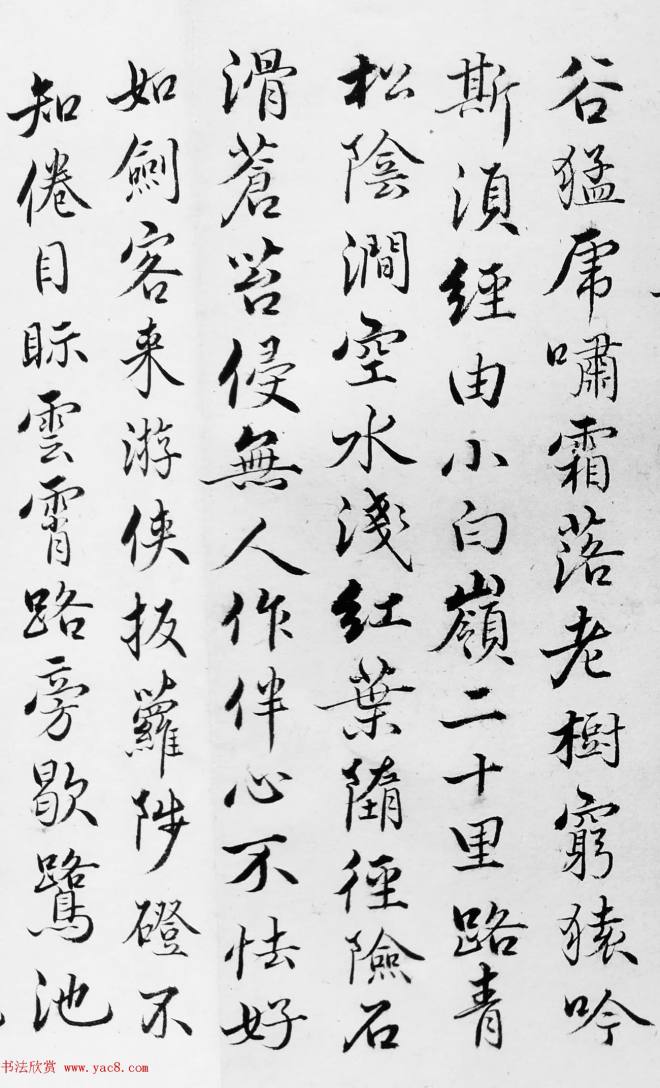 谷猛虎嘯霜落老樹窮猿吟
斯須經由小白嶺二十里路青
松陰澗空水淺紅葉隋徑險石
滑蒼苔侵無人作伴心不怯好
如劍客来游俠扳蘿陟磴不
知倦目眎雲霄路旁歇鷺池
书法欣赏 www.yac8.com